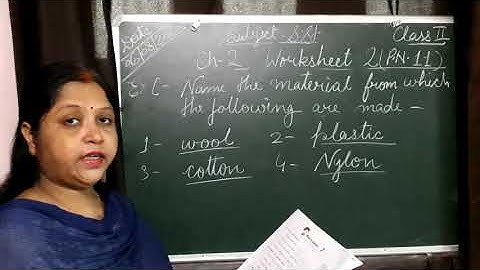 Date
Subject - S.St.
Class II
Ch-2 Worksheet 2 (PN. 11)
Ex C- Name the material from which
the following are made -
1- wool 2- plastic
3- cotton 4- Nylon